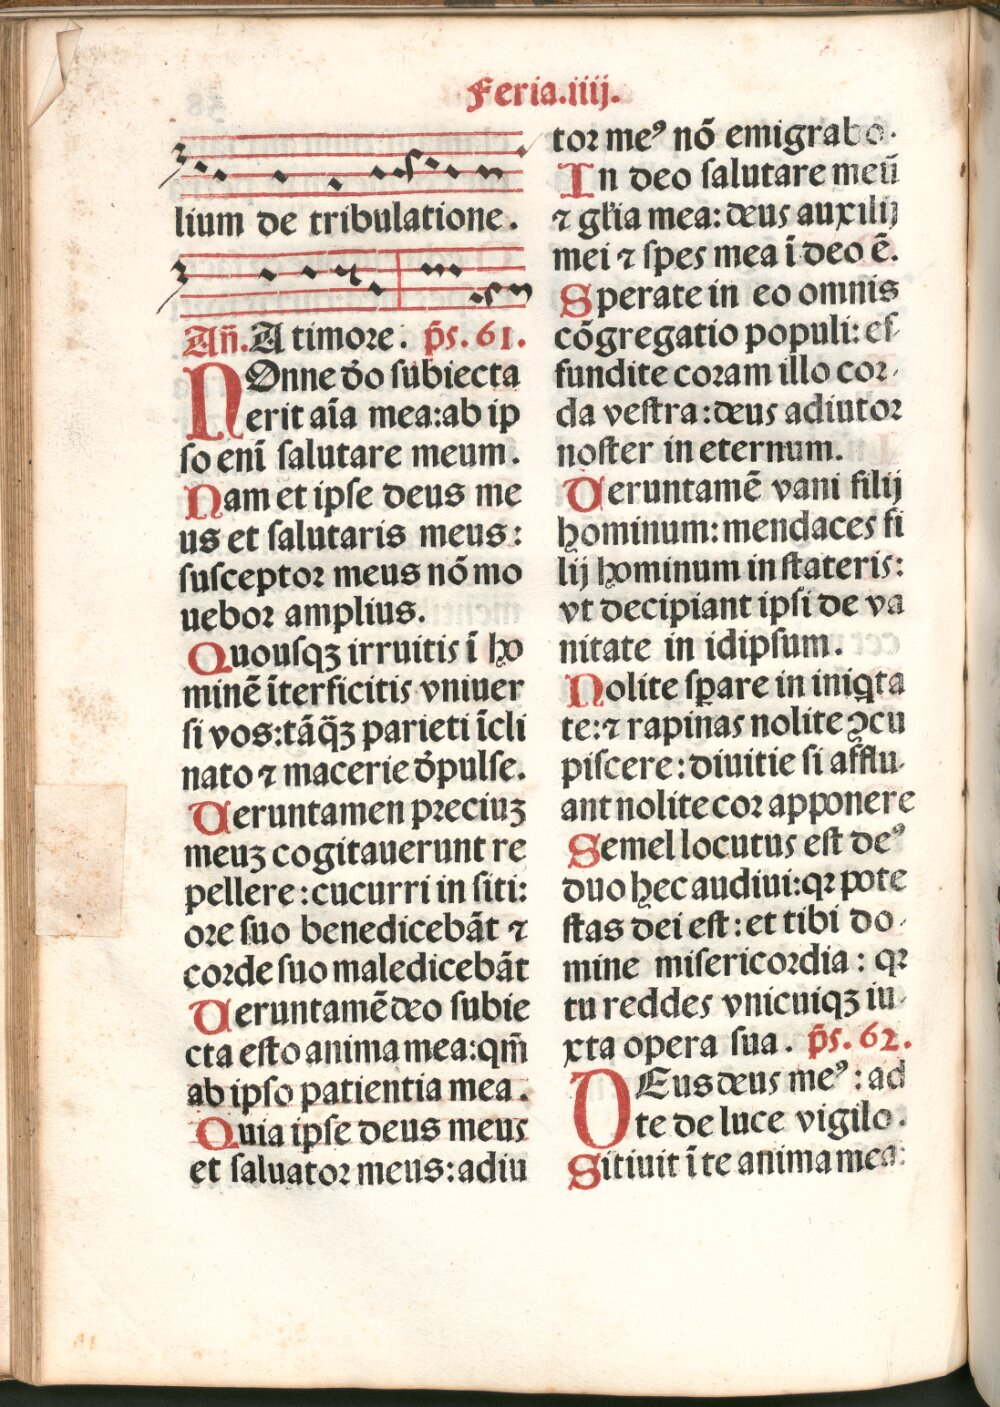 Feria.iiij.
lium de tribulatione.
Añ. A timore. p̄s. 61.
NOnne ďo subiecta
erit aīa mea:ab ip
so enī salutare meum.
Nam et ipse deus me
us et salutaris meus:
susceptor meus nō mo
uebor amplius.
Quousqꝫ irruitis ī ho
minē īterficitis vniuer
si vos:tāq̄ꝫ parieti īcli
nato ⁊ macerie ďpulse.
Ueruntamen preciuꝫ
meuꝫ cogitauerunt re
pellere:cucurri in siti:
ore suo benedicebāt ⁊
corde suo maledicebāt
Ueruntamē deo subie
cta esto anima mea:qm̄
ab ipso patientia mea.
Quia ipse deus meus
et saluator meus:adiu
tor meꝰ nō emigrabo.
In deo salutare meū
⁊ gl̄ia mea: deus auxilij
mei ⁊ spes mea ī deo ē.
Sperate in eo omnis
cōgregatio populi: ef
fundite coram illo cor-
da vestra:deus adiutor
noster in eternum.
Ueruntamē vani filij
hominum:mendaces fi
lij hominum in stateris:
vt decipiant ipsi de va
nitate in idipsum.
Nolite sꝑare in iniqta
te:⁊ rapinas nolite ꝯcu
piscere:diuitie si afflu-
ant nolite cor apponere
Semel locutus est deꝰ
duo hec audiui:qꝛ pote
stas dei est: et tibi do-
mine misericordia: qꝛ
tu reddes vnicuiqꝫ iu-
xta opera sua. p̄s. 62.
DEus deus meꝰ: ad
te de luce vigilo.
Sitiuit ī te anima mea: